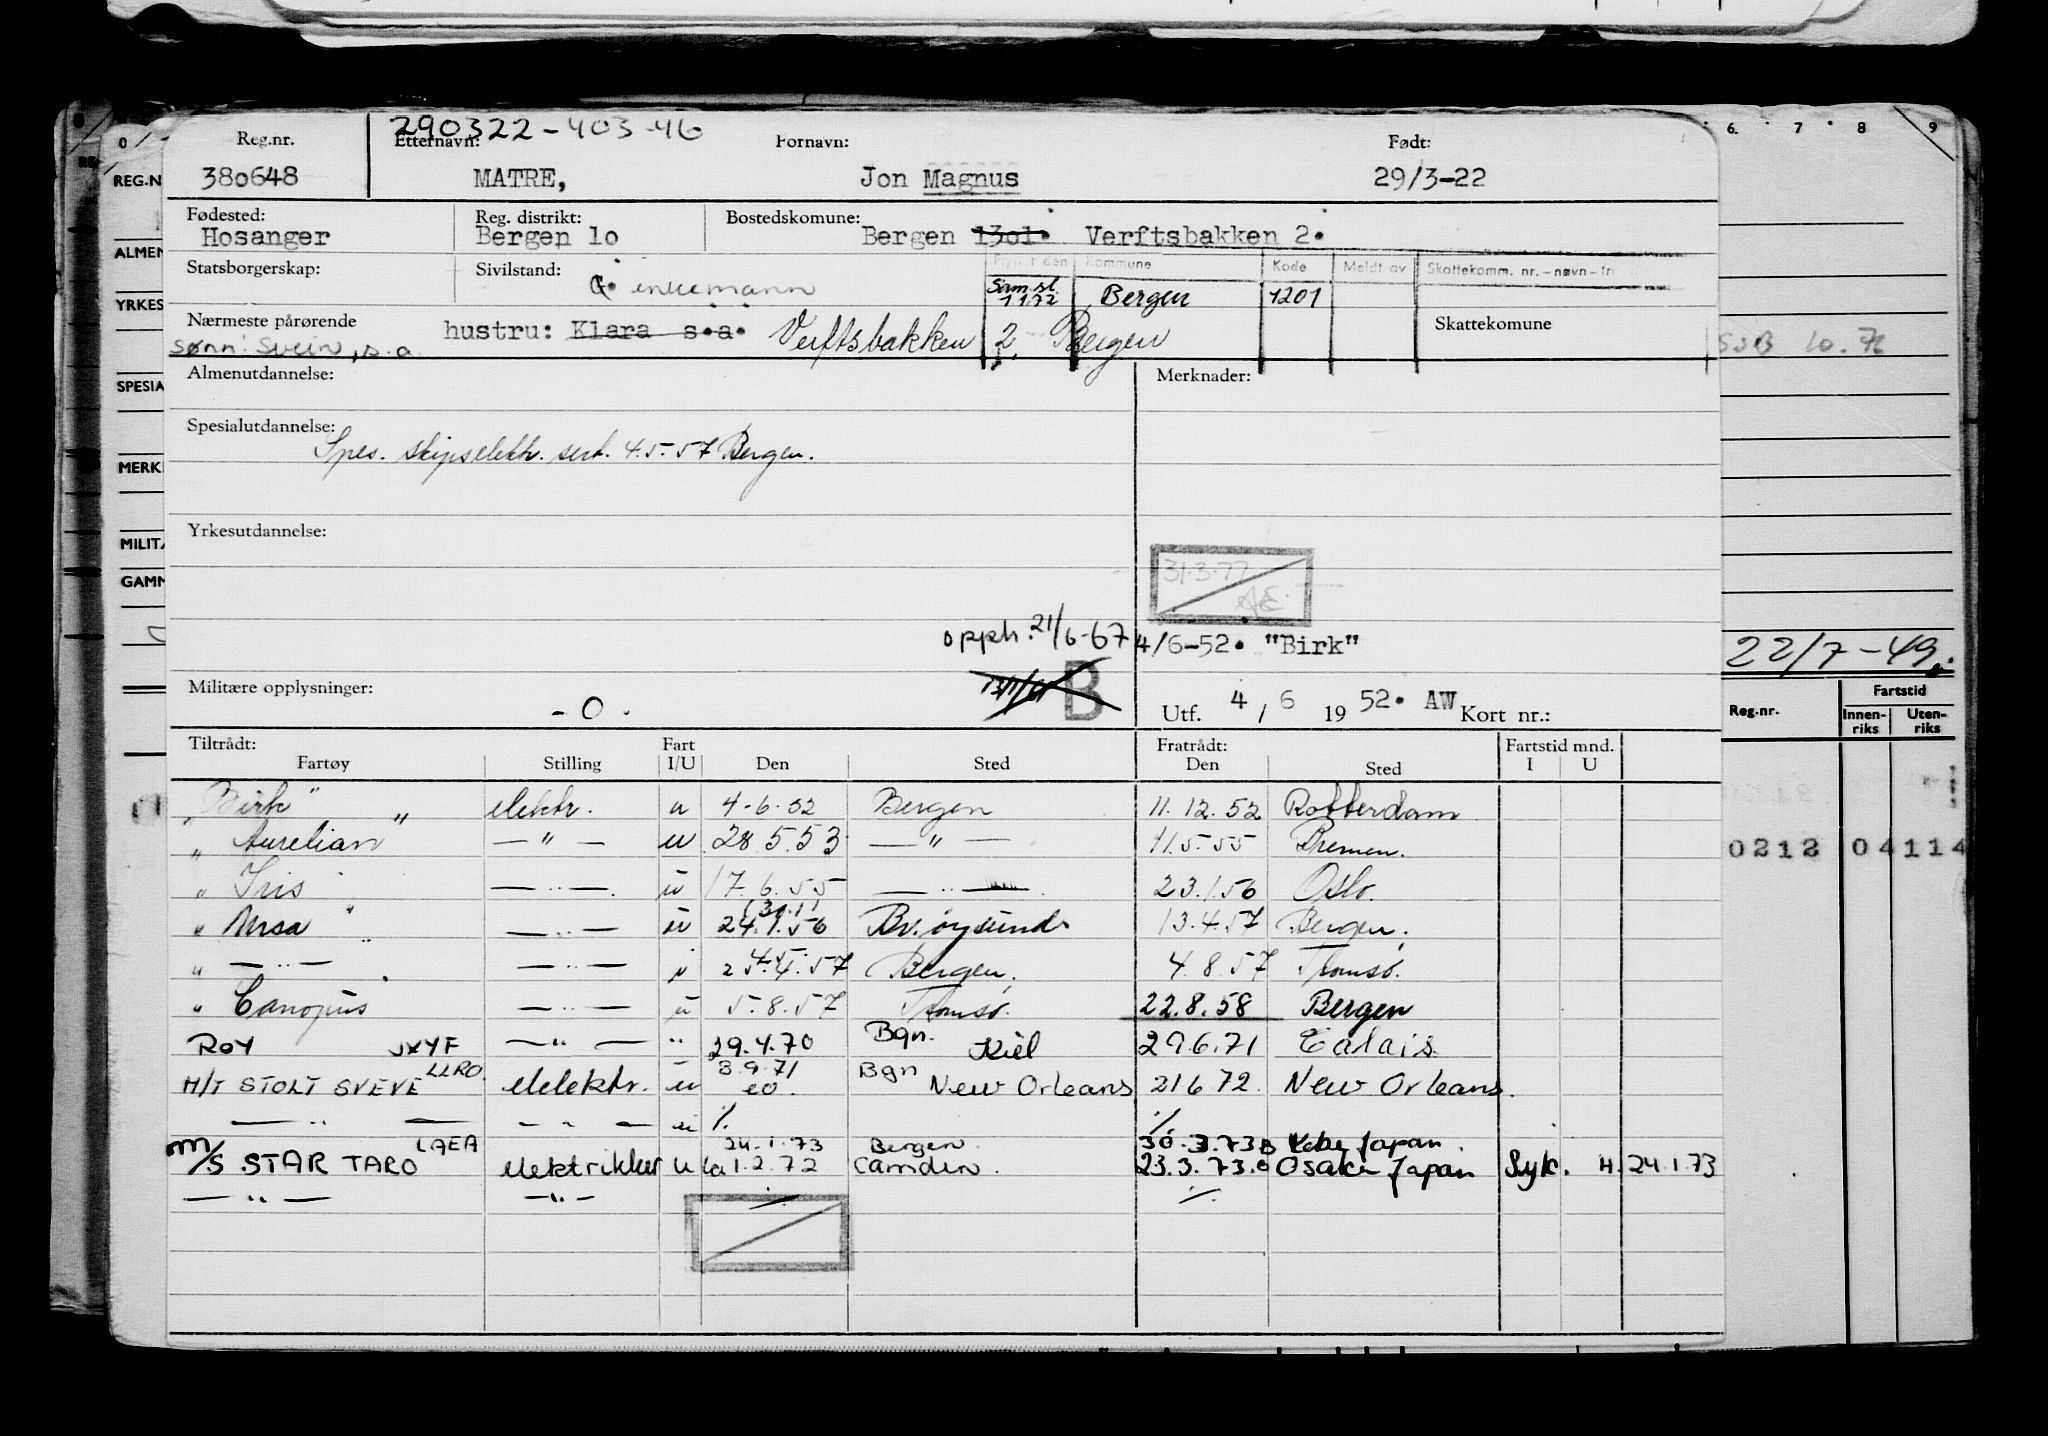 0 6. 7 8 9
290322-403-46
Reg.nr. Etternavn: Fornavn: Født:
380648 MATRE, Jon Magnus 29/3-22
REG.N
Fødested: Reg. distrikt: Bostedskomune:
Hosanger Bergen 10 Bergen 1301. Verftsbakken 2.
ALMEN
Statsborgerskap: Sivilstand: Kommune Kode Meldt av Skattekomm. nr.-navn-fr
G. enkemann Sam.sl. 1.1.72 Bergen 1201
YRKES
Nærmeste pårørende hustru: Klara s.a. Verftsbakken 2, Bergen Skattekomune
Sønn: Svein, s.a. 10.76
Almenutdannelse: Merknader:
SPESIA
Spesialutdannelse:
Spes. skipselektr. sert. 4.5.57 Bergen.
MERK
Yrkesutdannelse:
MILITÆ
GAMM
31.3.77
Æ
opph. 21/6-67 4/6-52. "Birk"
22/7-49.
Militære opplysninger: B
-0- Utf. 4/6 1952. AW Kort nr.:
Reg.nr. Fartstid
Innen-riks Uten-riks
Tiltrådt: Fart Fratrådt: Fartstid mnd.
Fartøy Stilling I/U Den Sted Den Sted I U
"Birk" elektr. u 4-6-52 Bergen 11.12.52 Rotterdam
" Aurelian " — " — u 28.5.53 — " — 11.5.55 Bremen.
0212 04114
" Iris — " — u 17.6.55 — " — 23.1.56 Oslo.
(30.1)
" Ursa " — " — u 24.1.56 Br.øysund 13.4.57 Bergen.
" — " — — " — i 25.4.57 Bergen. 4.8.57 Tromsø.
" Canopus — " — u 5.8.57 Tromsø. 22.8.58 Bergen
ROY JXYF — " — " 29.4.70 Bgn. Kiel 29.6.71 Calais
M/T STOLT SVEVE LLRO elektr. u 3.9.71 Bgn
eo. New Orleans 21 6 72. New Orleans.
— " — — " — u ./. ./.
24.1.73 Bergen 30.3.73 B Kobe Japan
M/S STAR TARO LAEA elektriker u La 1.2.72 Camden. 23.3.73.e Osaka Japan Syk. H. 24.1.73
— " — — " — ./. ./.